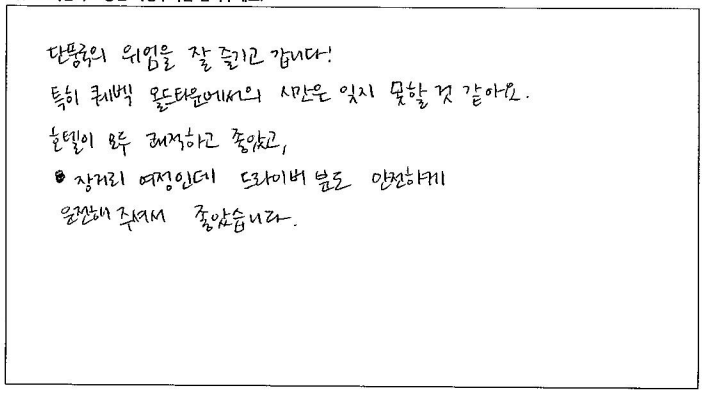 단풍국의 위엄을 잘 즐기고 갑니다!
특히 퀘벡 올드타운에서의 시간은 잊지 못할 것 같아요.
호텔이 모두 쾌적하고 좋았고,
장거리 여정인데 드라이버 분도 안전하게
운전해 주셔서 좋았습니다.